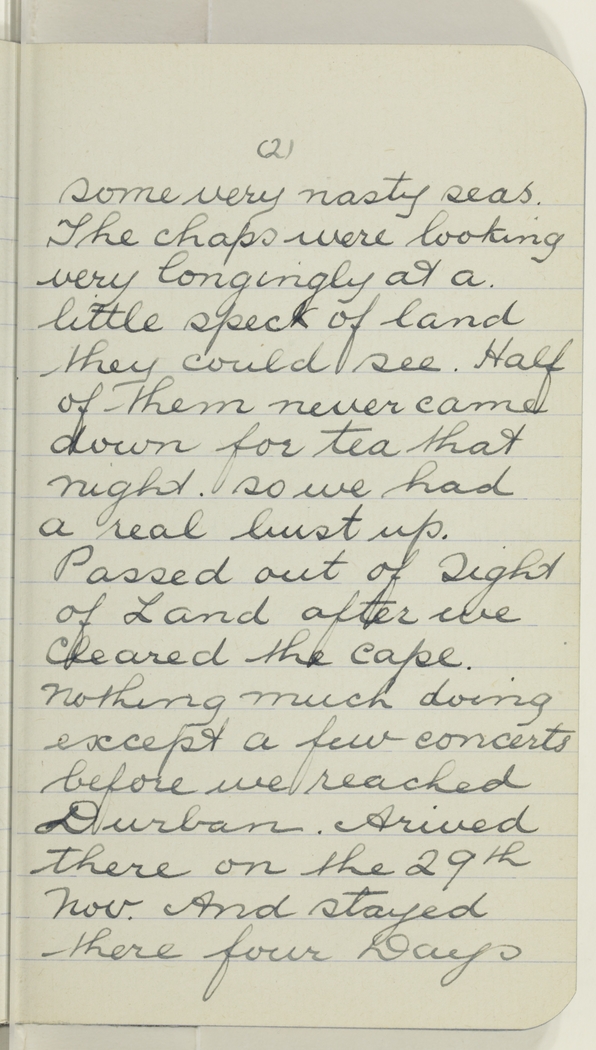 (2)
some very nasty seas.
The chaps were looking
very longingly at a.
little speck of land
they could see. Half
of them never came
down for tea that
night. so we had
a real bust up.
Passed out of Sight
of Land after we
Cleared the cape.
Nothing much doing
except a few concerts
before we reached
Durban. Arived
there on the 29th
Nov. And stayed
there four Days